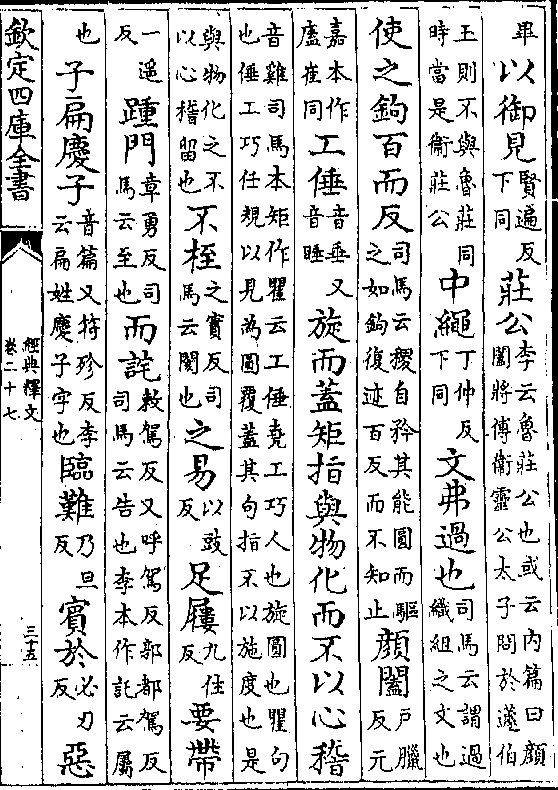 畢以御見賢遍反下同莊公李云魯莊公也或云内篇曰顏闔將傅衛靈公太子問於蘧伯
玉則不與魯莊同時當是衛莊公中繩丁仲反下同文弗過也司馬云謂過織組之文也
使之鉤百而反司馬云稷自矜其能圓而驅之如鉤復迹百反而不知止顏闔戶臘反元
嘉本作盧崔同工倕音垂又音睡旋而蓋矩指與物化而不以心稽
音雞司馬本矩作瞿云工倕堯工巧人也旋圓也瞿句也倕工巧任規以見為圓覆蓋其句指不以施度也是
與物化之不以心稽留也不桎之實反司馬云閡也之易以豉反足屨九住反要帶
一遥反踵門章勇反司馬云至也而詫敕駕反又呼駕反郭都駕反司馬云告也李本作託云屬
也子扁慶子音篇又符殄反李云扁姓慶子字也臨難乃旦反賓於必刃反惡
欽定四庫全書
經典釋文
卷二十七
三十五